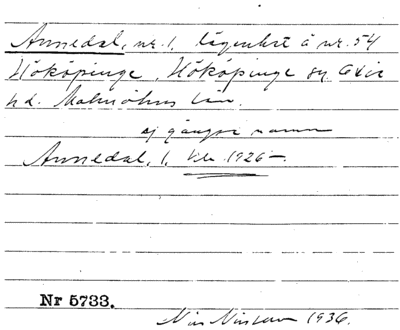 Annedal, nr. 1, lägenhet å nr. 54
Hököpinge, Hököpinge sn, Oxie
hd. Malmöhus län.
ej gängse namn
Annedal, 1, 1926 –
Nr 5733.
Nils 1936.